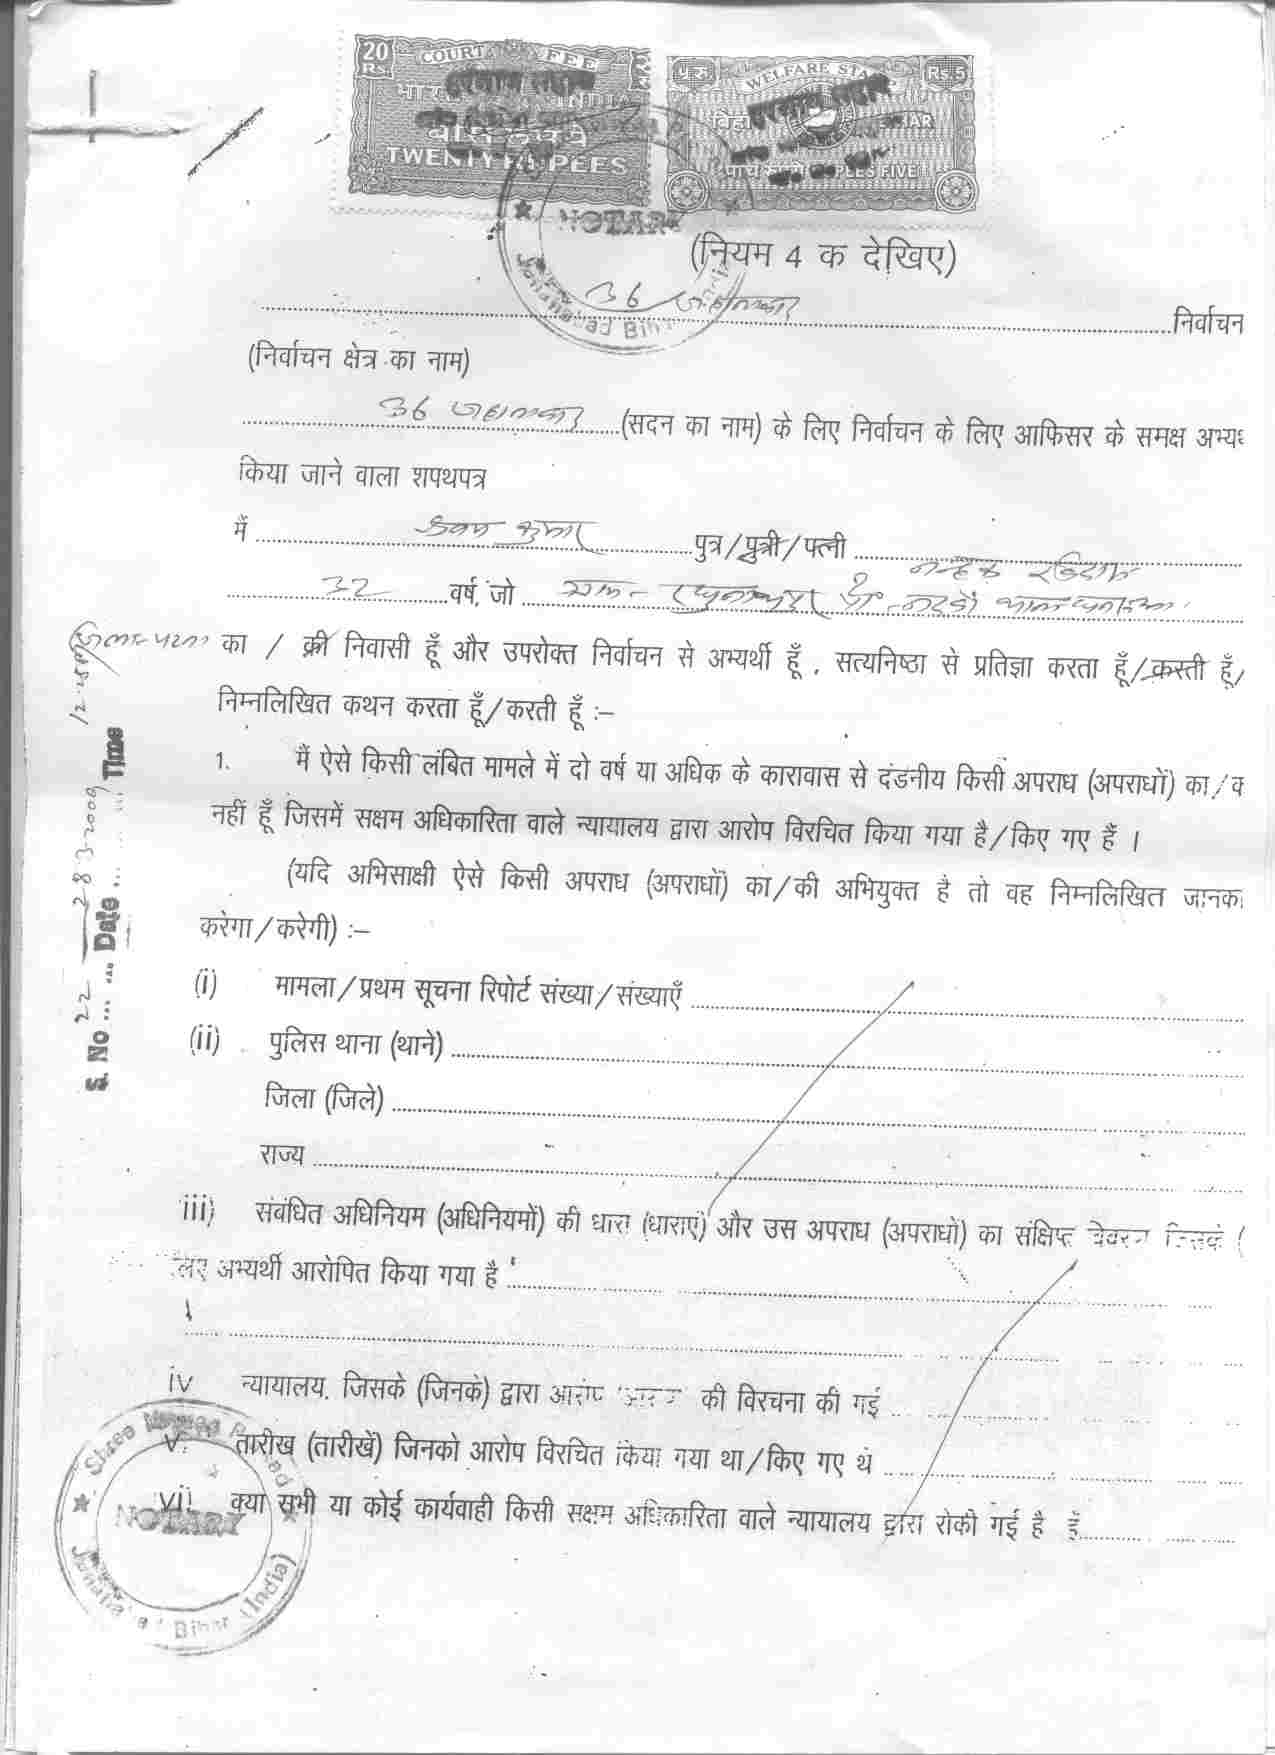 20 Rs. COURT FEE
TWENTY RUPEES
WELFARE STA
Rs. 5
NOTARY
(नियम 4 क देखिए)
36 जहानाबाद निर्वाचन
(निर्वाचन क्षेत्र का नाम)
36 जहानाबाद (सदन का नाम) के लिए निर्वाचन के लिए आफिसर के समक्ष अभ्यर्
किया जाने वाला शपथपत्र
मैं श्रवण कुमार पुत्र/पुत्री/पत्नी
32 वर्ष, जो
का / की निवासी हूँ और उपरोक्त निर्वाचन से अभ्यर्थी हूँ , सत्यनिष्ठा से प्रतिज्ञा करता हूँ/करती हूँ/
निम्नलिखित कथन करता हूँ/करती हूँ :–
1. मैं ऐसे किसी लंबित मामले में दो वर्ष या अधिक के कारावास से दंडनीय किसी अपराध (अपराधों) का/
नहीं हूँ जिसमें सक्षम अधिकारिता वाले न्यायालय द्वारा आरोप विरचित किया गया है/किए गए हैं ।
(यदि अभिसाक्षी ऐसे किसी अपराध (अपराधों) का/की अभियुक्त है तो वह निम्नलिखित जानका
करेगा/करेगी) :–
(i) मामला/प्रथम सूचना रिपोर्ट संख्या/संख्याएँ
(ii) पुलिस थाना (थाने)
जिला (जिले)
राज्य
iii) संबंधित अधिनियम (अधिनियमों) की धारा (धाराएं) और उस अपराध (अपराधों) का संक्षिप्त
लिए अभ्यर्थी आरोपित किया गया है
iv न्यायालय, जिसके (जिनके) द्वारा आरोप की विरचना की गई
v. तारीख (तारीखें) जिनको आरोप विरचित किया गया था/किए गए थे
vi) क्या सभी या कोई कार्यवाही किसी सक्षम अधिकारिता वाले न्यायालय द्वारा रोकी गई है
S. No ... 22 ... Date ... 28-3-2009 ... Time
NOTARY
Jehanabad Bihar (India)